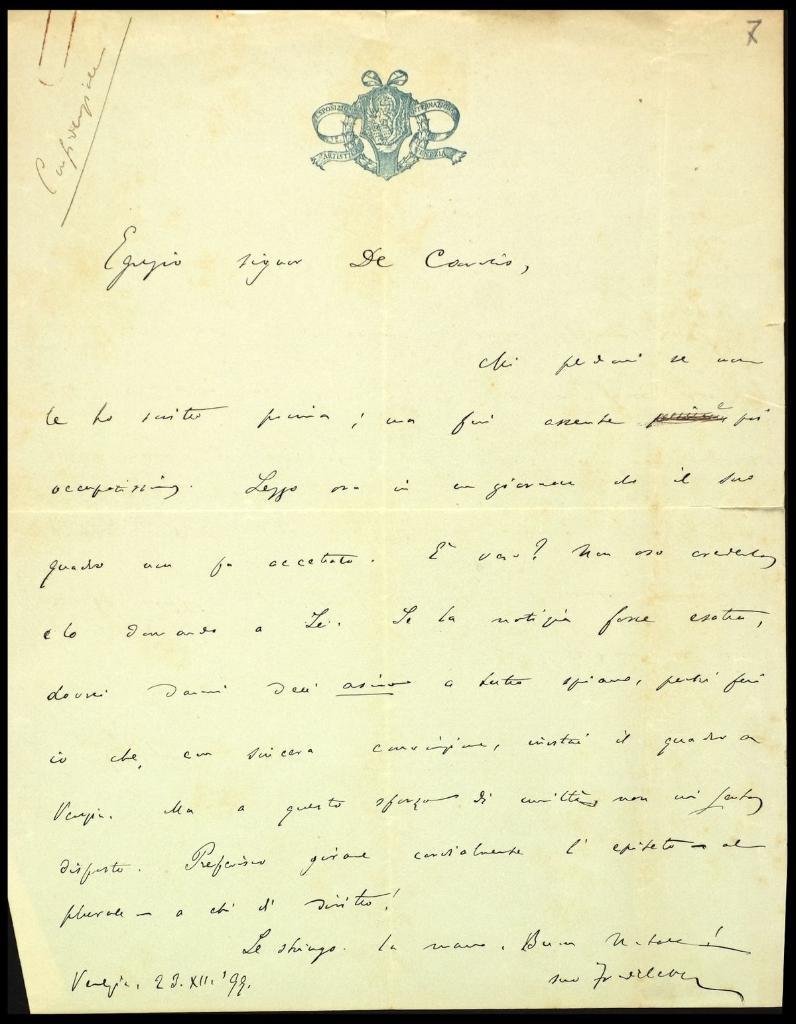 7
Confidenziale
ESPOSIZIONE INTERNAZIONALE
ARTISTICA VENEZIA
Egregio signor De
Mi perdoni se non
le ho scritto prima; ma fui assente e poi
occupatissimo. Leggo ora in un giornale che il suo
quadro non fu accettato. È vero? Non oso crederlo
e lo domando a Lei. Se la notizia fosse esatta,
dovrei darmi dell' asino a tutto spiano, perchè fui
io che, con sincera convinzione, invitai il quadro a
Venezia. Ma a questo sforzo di umiltà non mi sento
disposto. Preferisco girare cordialmente l'epiteto – al
plurale – a chi di diritto!
Le stringo la mano. Buon Natale!
Venezia, 23.XII.'99.
suo Fradeletto